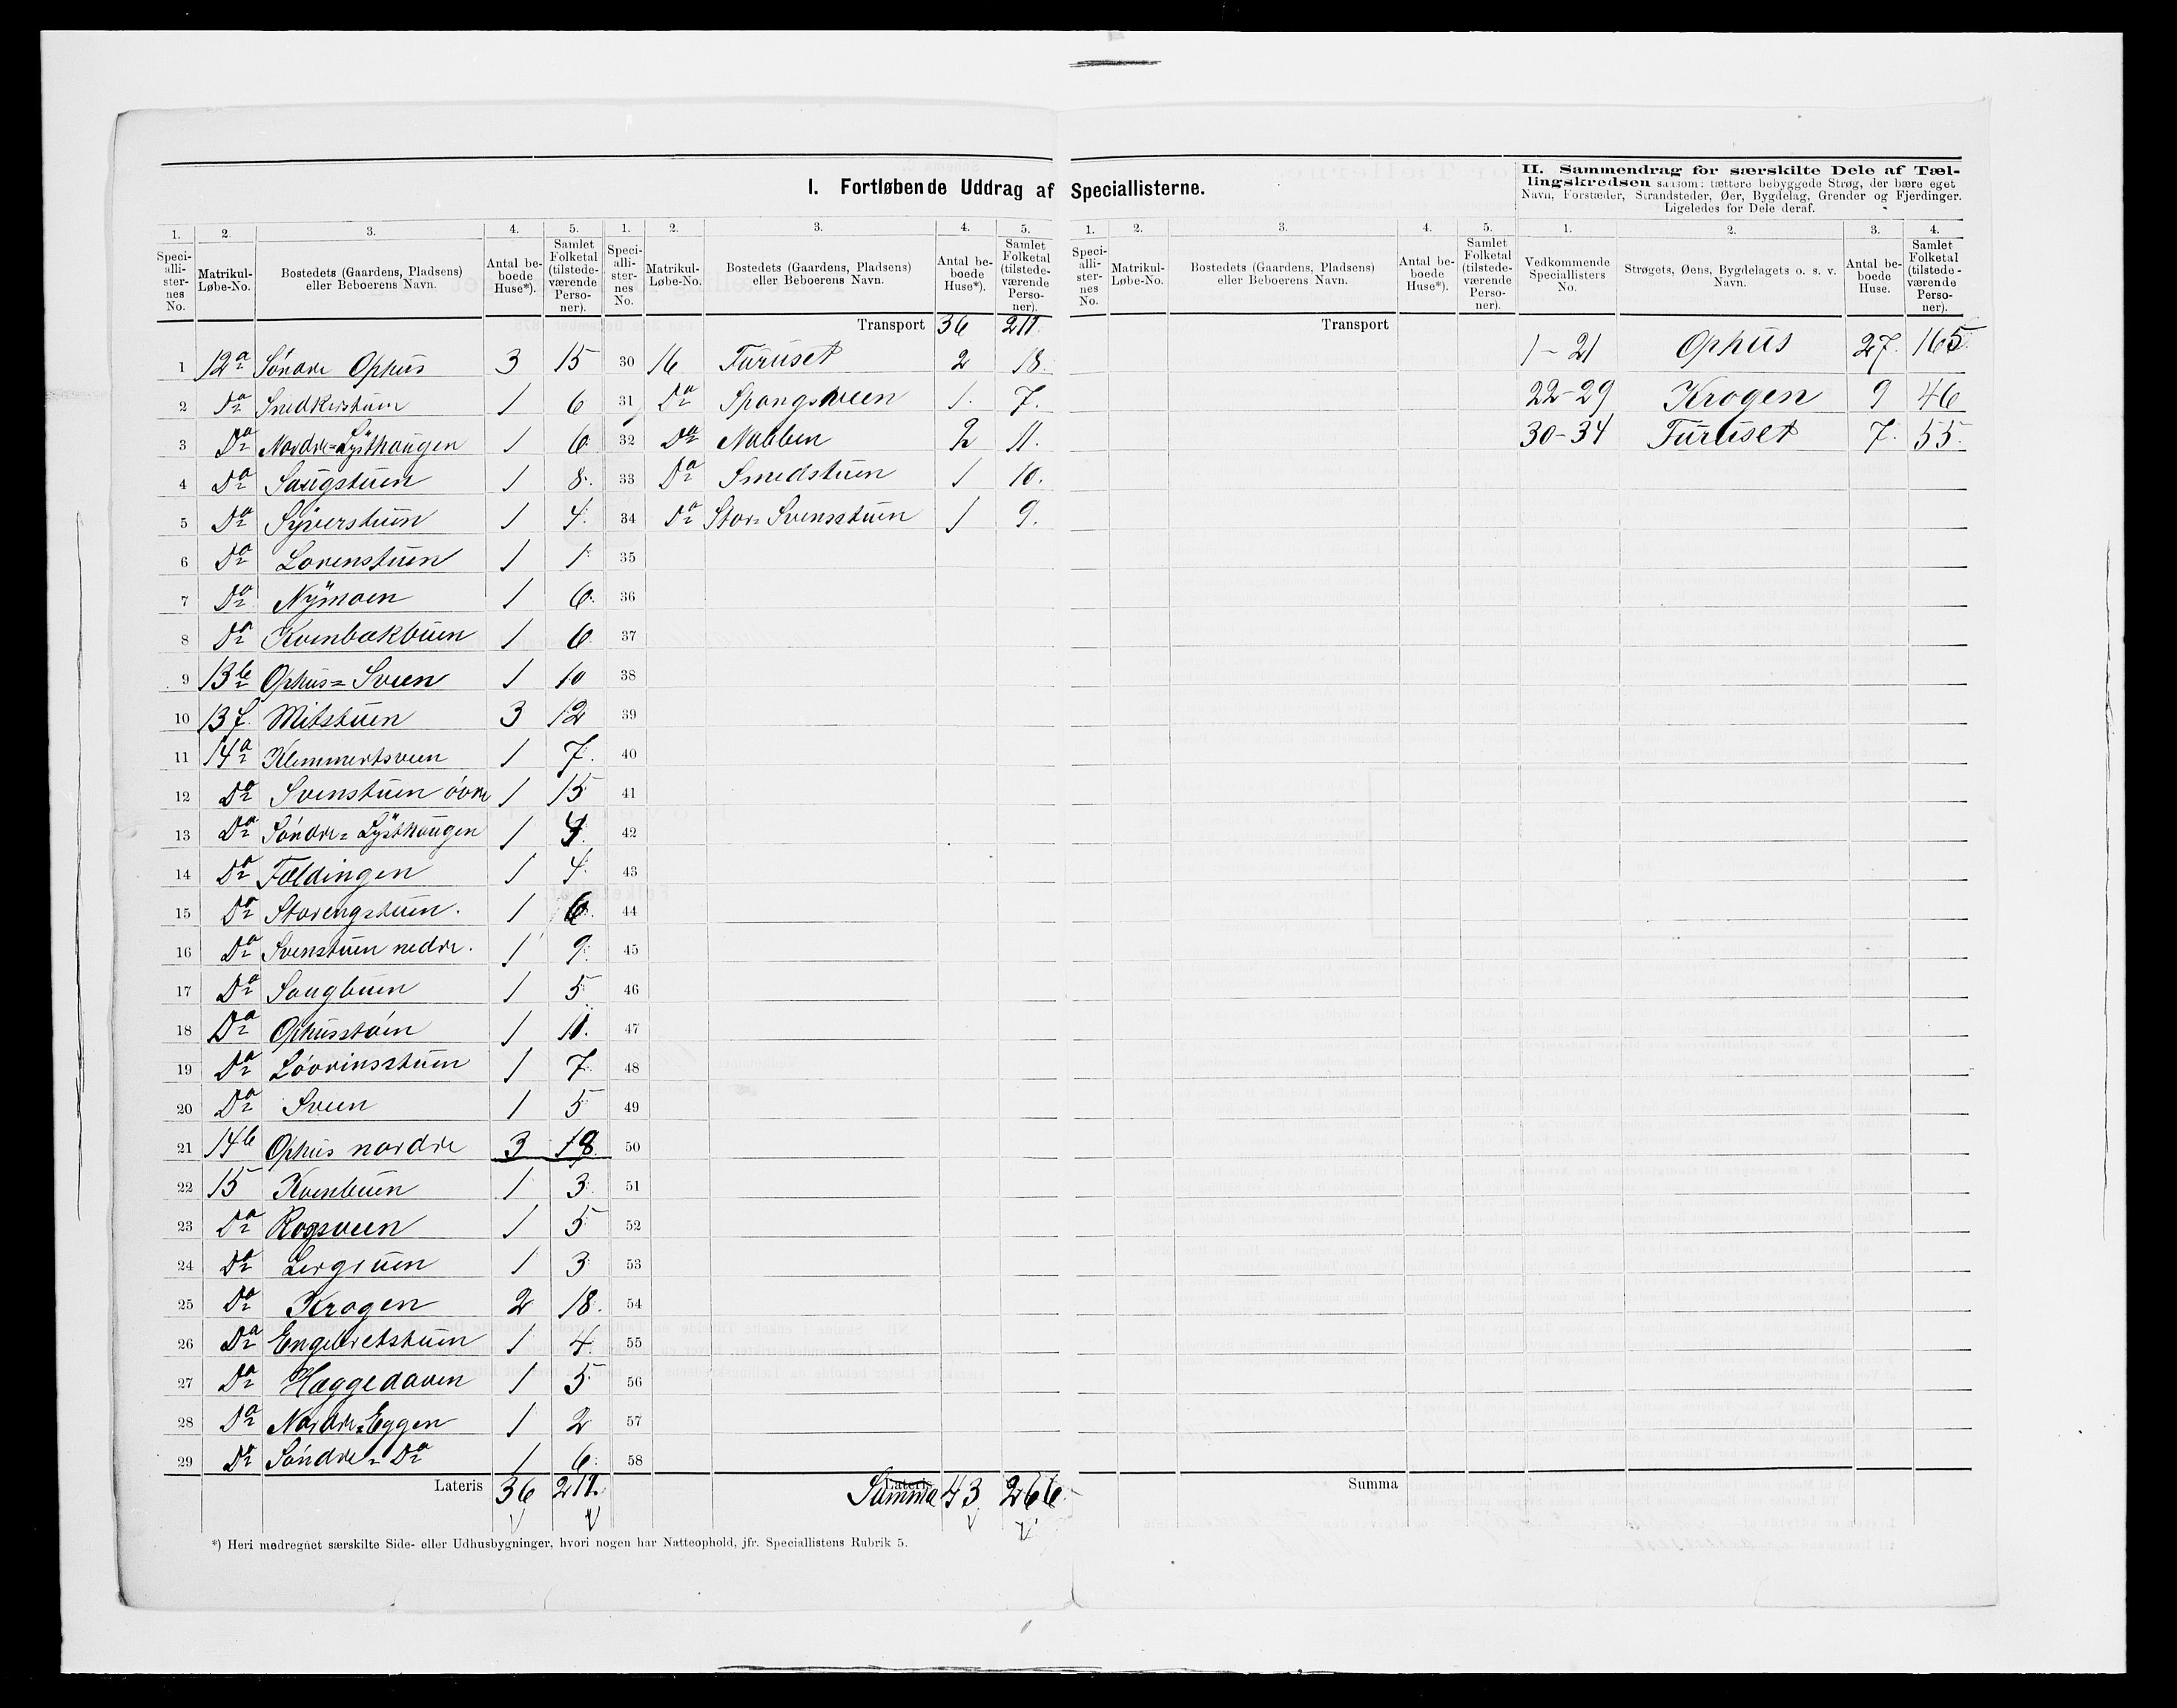 I. Fortløbende Uddrag af Speciallisterne.
II. Sammendrag for særskilte Dele af Tæl-
lingskredsen saasom: tættere bebyggede Strøg, der bære eget
Navn, Forstæder, Strandsteder, Øer, Bygdelag, Grender og Fjerdinger.
Ligeledes for Dele deraf.
1. 2. 3. 4. 5. 1. 2. 3. 4. 5. 1. 2. 3. 4. 5. 1. 2. 3. 4.
Speci-alli-ster-nes No. Matrikul-Løbe-No. Bostedets (Gaardens, Pladsens) eller Beboerens Navn. Antal be-boede Huse*). Samlet Folketal (tilstede-værende Perso-ner).
Speci-alli-ster-nes No. Matrikul-Løbe-No. Bostedets (Gaardens, Pladsens) eller Beboerens Navn. Antal be-boede Huse*). Samlet Folketal (tilstede-værende Perso-ner).
Speci-alli-ster-nes No. Matrikul-Løbe-No. Bostedets (Gaardens, Pladsens) eller Beboerens Navn. Antal be-boede Huse*). Samlet Folketal (tilstede-værende Perso-ner).
Vedkommende Speciallisters No. Strøgets, Øens, Bygdelagets o. s. v. Navn. Antal be-boede Huse. Samlet Folketal (tilstede-værende Perso-ner).
1 12a Söndre Ophus 3 15
2 Do Snedkerstuen 1 6
3 Do Nordre=Lysthaugen 1 6
4 Do Saugstuen 1 8.
5 Do Syverstuen 1 4.
6 Do Lorenstuen 1 1
7 Do Nymoen 1 6.
8 Do Kvenbakbuen 1 6.
9 13b Ophus=Sveen 1 10
10 13f. Mitstuen 3 12
11 14a Klemmertsveen 1 7.
12 Do Svenstuen övre 1 15
13 Do Söndre=Lysthaugen 1 4.
14 Do Foldingen 1 4.
15 Do Storengstuen. 1 6.
16 Do Svenstuen nedre. 1 9.
17 Do Saugbuen 1 5
18 Do Ophusstöen 1 11.
19 Do Lövrinsstuen 1 7.
20 Do Sveen 1 5
21 14b Ophus nordre 3 18
22 15 Kvenbuen 1 3.
23 Do Rogsveen 1 5
24 Do 1 3
25 Do Krogen 2 18.
26 Do Engebretstuen 1 4.
27 Do Hæggedaven 1 5
28 Do Nordre=Eggen 1 2
29 Do Söndre=Do 1 6.
Lateris 36 211.
Transport 36 211.
30 16 Furuset 2 18
31 Do Spangsveen 1. 7.
32 Do Nabben 2 11.
33 Do Smedstuen 1 10.
34 Do Stor=Svensstuen 1 9.
35
36
37
38
39
40
41
42
43
44
45
46
47
48
49
50
51
52
53
54
55
56
57
58
Lateris
Summa 43 266
Transport
Summa
1-21 Ophus 27. 165.
22-29 Krogen 9 46
30-34 Furuset 7. 55.
*) Heri medregnet særskilte Side- eller Udhusbygninger, hvori nogen har Natteophold, jfr. Speciallistens Rubrik 5.